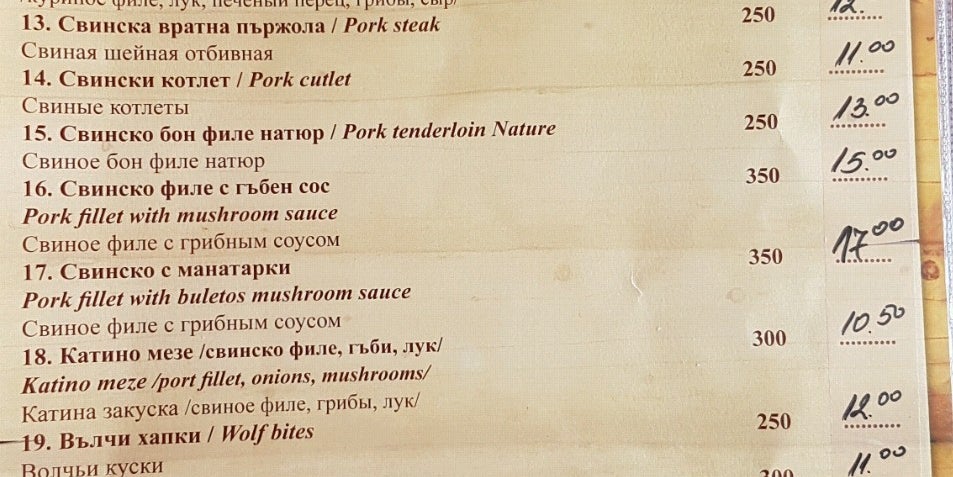 /куриное филе, лук, печеный перец, грибы, сыр/ 12.
13. Свинска вратна пържола / Pork steak 250
Свиная шейная отбивная 11.00
14. Свински котлет / Pork cutlet 250
Свиные котлеты 13.00
15. Свинско бон филе натюр / Pork tenderloin Nature 250
Свиное бон филе натюр 15.00
16. Свинско филе с гъбен сос 350
Pork fillet with mushroom sauce
Свиное филе с грибным соусом 17.00
17. Свинско с манатарки 350
Pork fillet with buletos mushroom sauce
Свиное филе с грибным соусом 10.50
18. Катино мезе /свинско филе, гъби, лук/ 300
Katino meze /port fillet, onions, mushrooms/
Катина закуска /свиное филе, грибы, лук/ 12.00
19. Вълчи хапки / Wolf bites 250
Волчьи куски 11.00
300